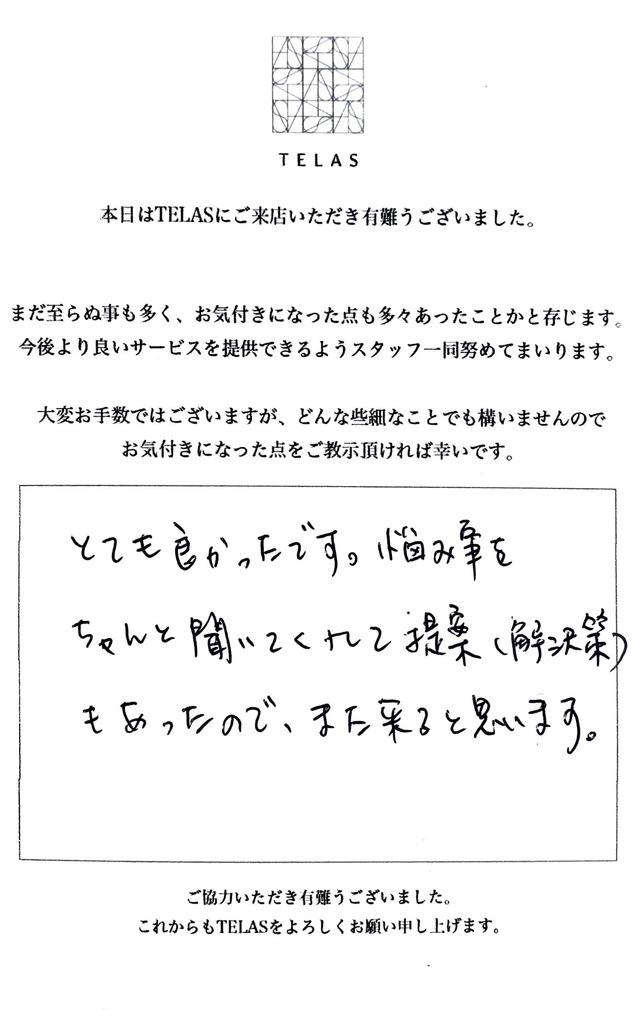 TELAS
本日はTELASにご来店いただき有難うございました。
まだ至らぬ事も多く、お気付きになった点も多々あったことかと存じます。
今後より良いサービスを提供できるようスタッフ一同努めてまいります。
大変お手数ではございますが、どんな些細なことでも構いませんので
お気付きになった点をご教示頂ければ幸いです。
とても良かったです。悩み事を
ちゃんと聞いてくれて提案(解決策)
もあったので、また来ると思います。
ご協力いただき有難うございました。
これからもTELASをよろしくお願い申し上げます。